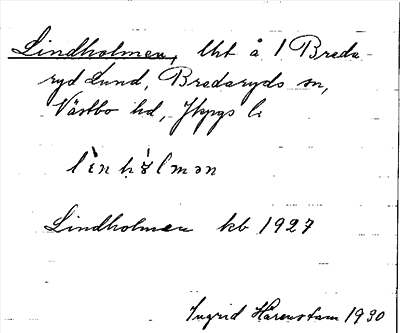 Lindholmen, lht å 1 Breda
ryd Lund, Bredaryds sn,
Västbo hd, Jkpgs l:
Lindholmen kb 1927
Ingrid Härenstam 1930